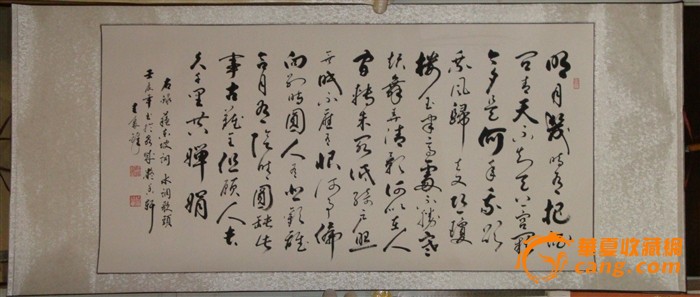 明月幾時有把酒
問青天不知天上宮闕
今夕是何年我欲
乘風歸去又恐瓊
樓玉宇高處不勝寒
起舞弄清影何似在人
間轉朱閣低綺戶照
無眠不應有恨何事偏
向別時圓人有悲歡離
合月有陰晴圓缺此
事古難全但願人長
久千里共嬋娟
右錄蘇東坡詞水调歌頭
壬辰年書於
華夏收藏網
cang.com